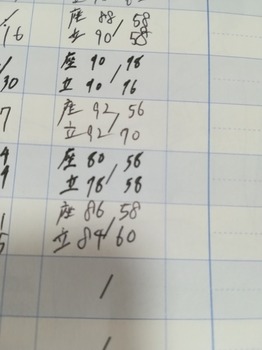 座 88/58
16 立 90/58
座 90/78
30 立 90/76
7 座 92/56
立 92/70
座 80/56
立 78/58
座 86/58
立 84/60
/
/